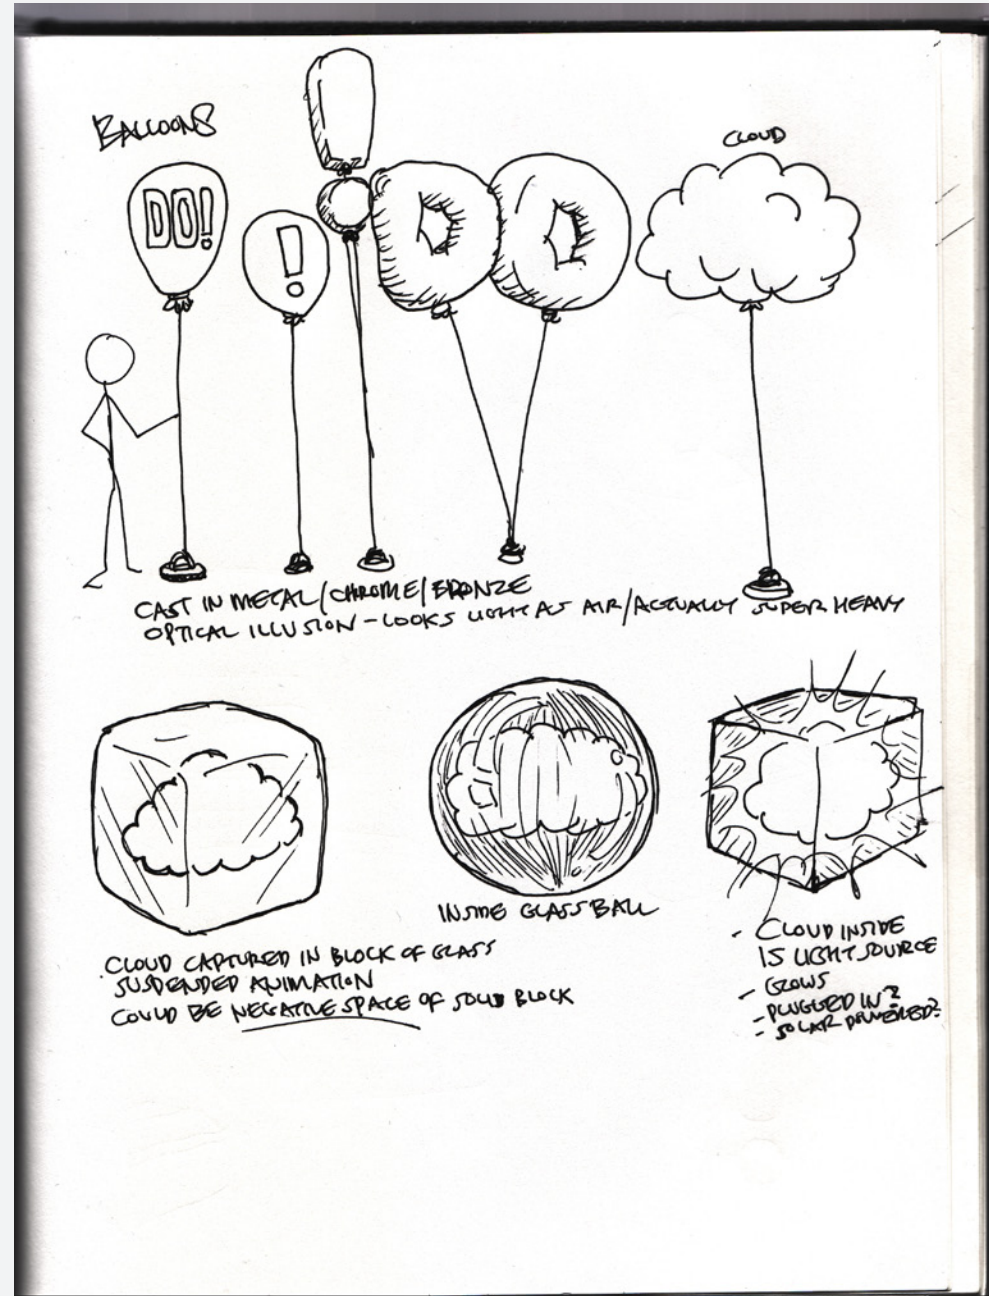 BALLOONS
CLOUD
DO!
!
!
DO
CAST IN METAL/CHROME/BRONZE
OPTICAL ILLUSION - LOOKS LIGHT AS AIR/ACTUALLY SUPER HEAVY
INSIDE GLASS BALL
CLOUD CAPTURED IN BLOCK OF GLASS
SUSPENDED ANIMATION
COULD BE NEGATIVE SPACE OF SOLID BLOCK
- CLOUD INSIDE
IS LIGHT SOURCE
- GLOWS
- PLUGGED IN?
- SOLAR POWERED?